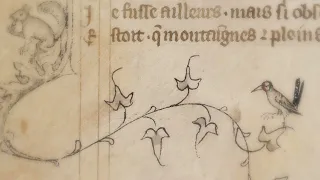 Je fusse ailleurs · mais si obs
Estoit · q̃ moutaignes ⁊ plains